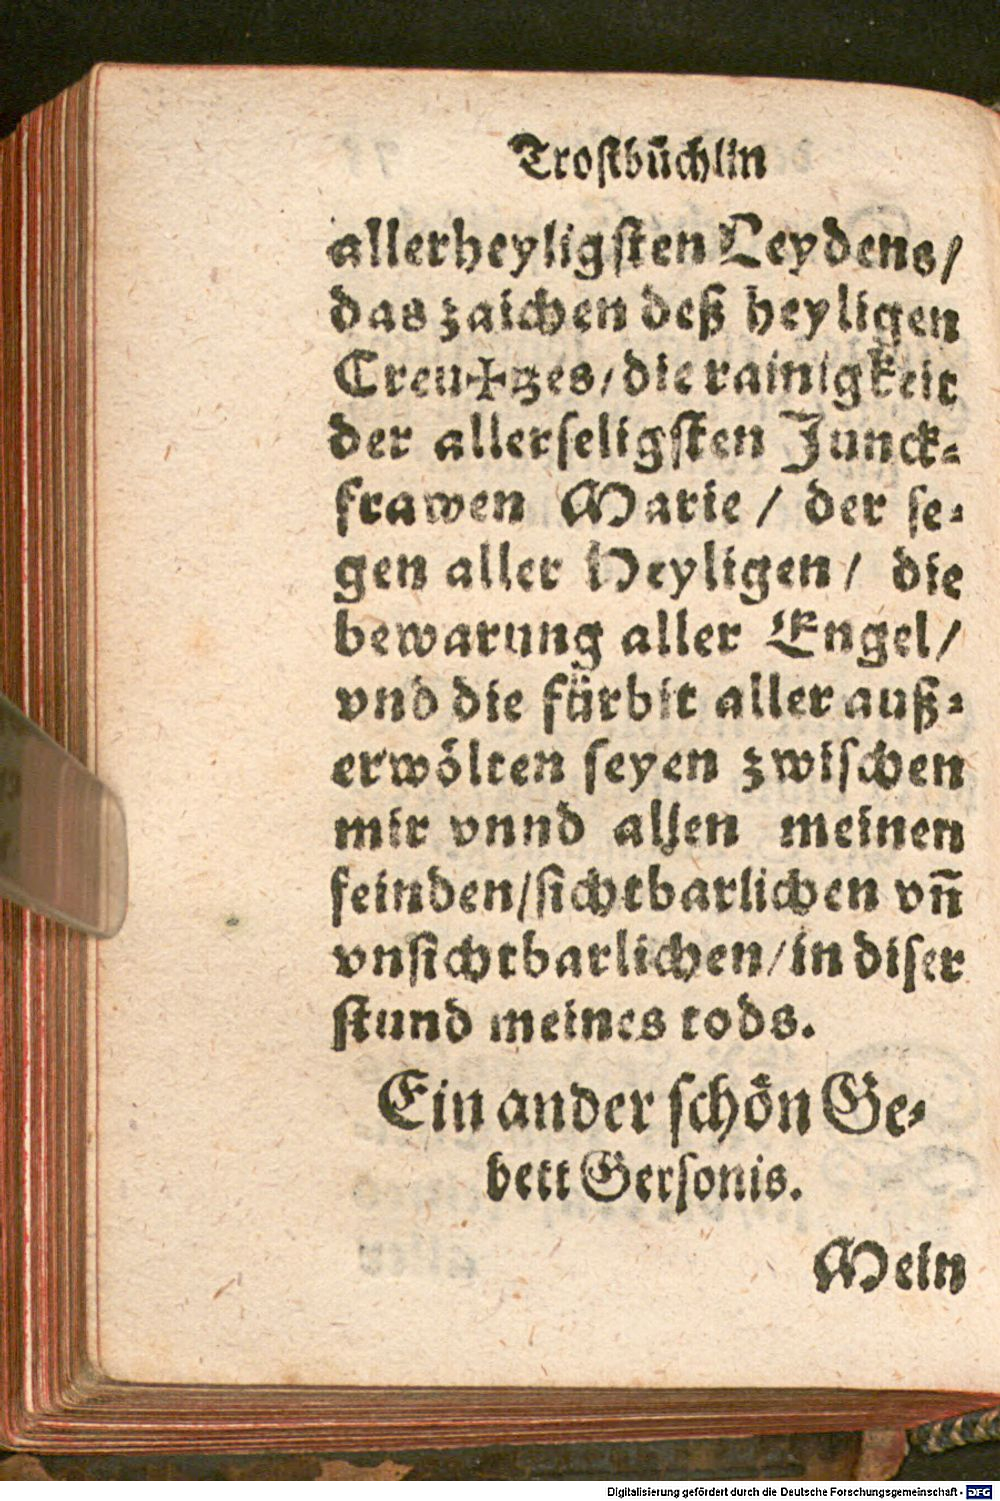 Trostbüchlin
allerheyligsten Leydens/
das zaichen deß heyligen
Creu✠tzes/ die rainigkeit
der allerseligsten Junck⸗
frawen Marie / der se⸗
gen aller Heyligen / die
bewarung aller Engel/
vnd die fürbit aller auß⸗
erwölten seyen zwischen
mir vnnd allen meinen
feinden/sichtbarlichen vn̄
vnsichtbarlichen/in diser
stund meines tods.
Ein ander schön Ge⸗
bett Gersonis.
Mein
Digitalisierung gefördert durch die Deutsche Forschungsgemeinschaft - DFG